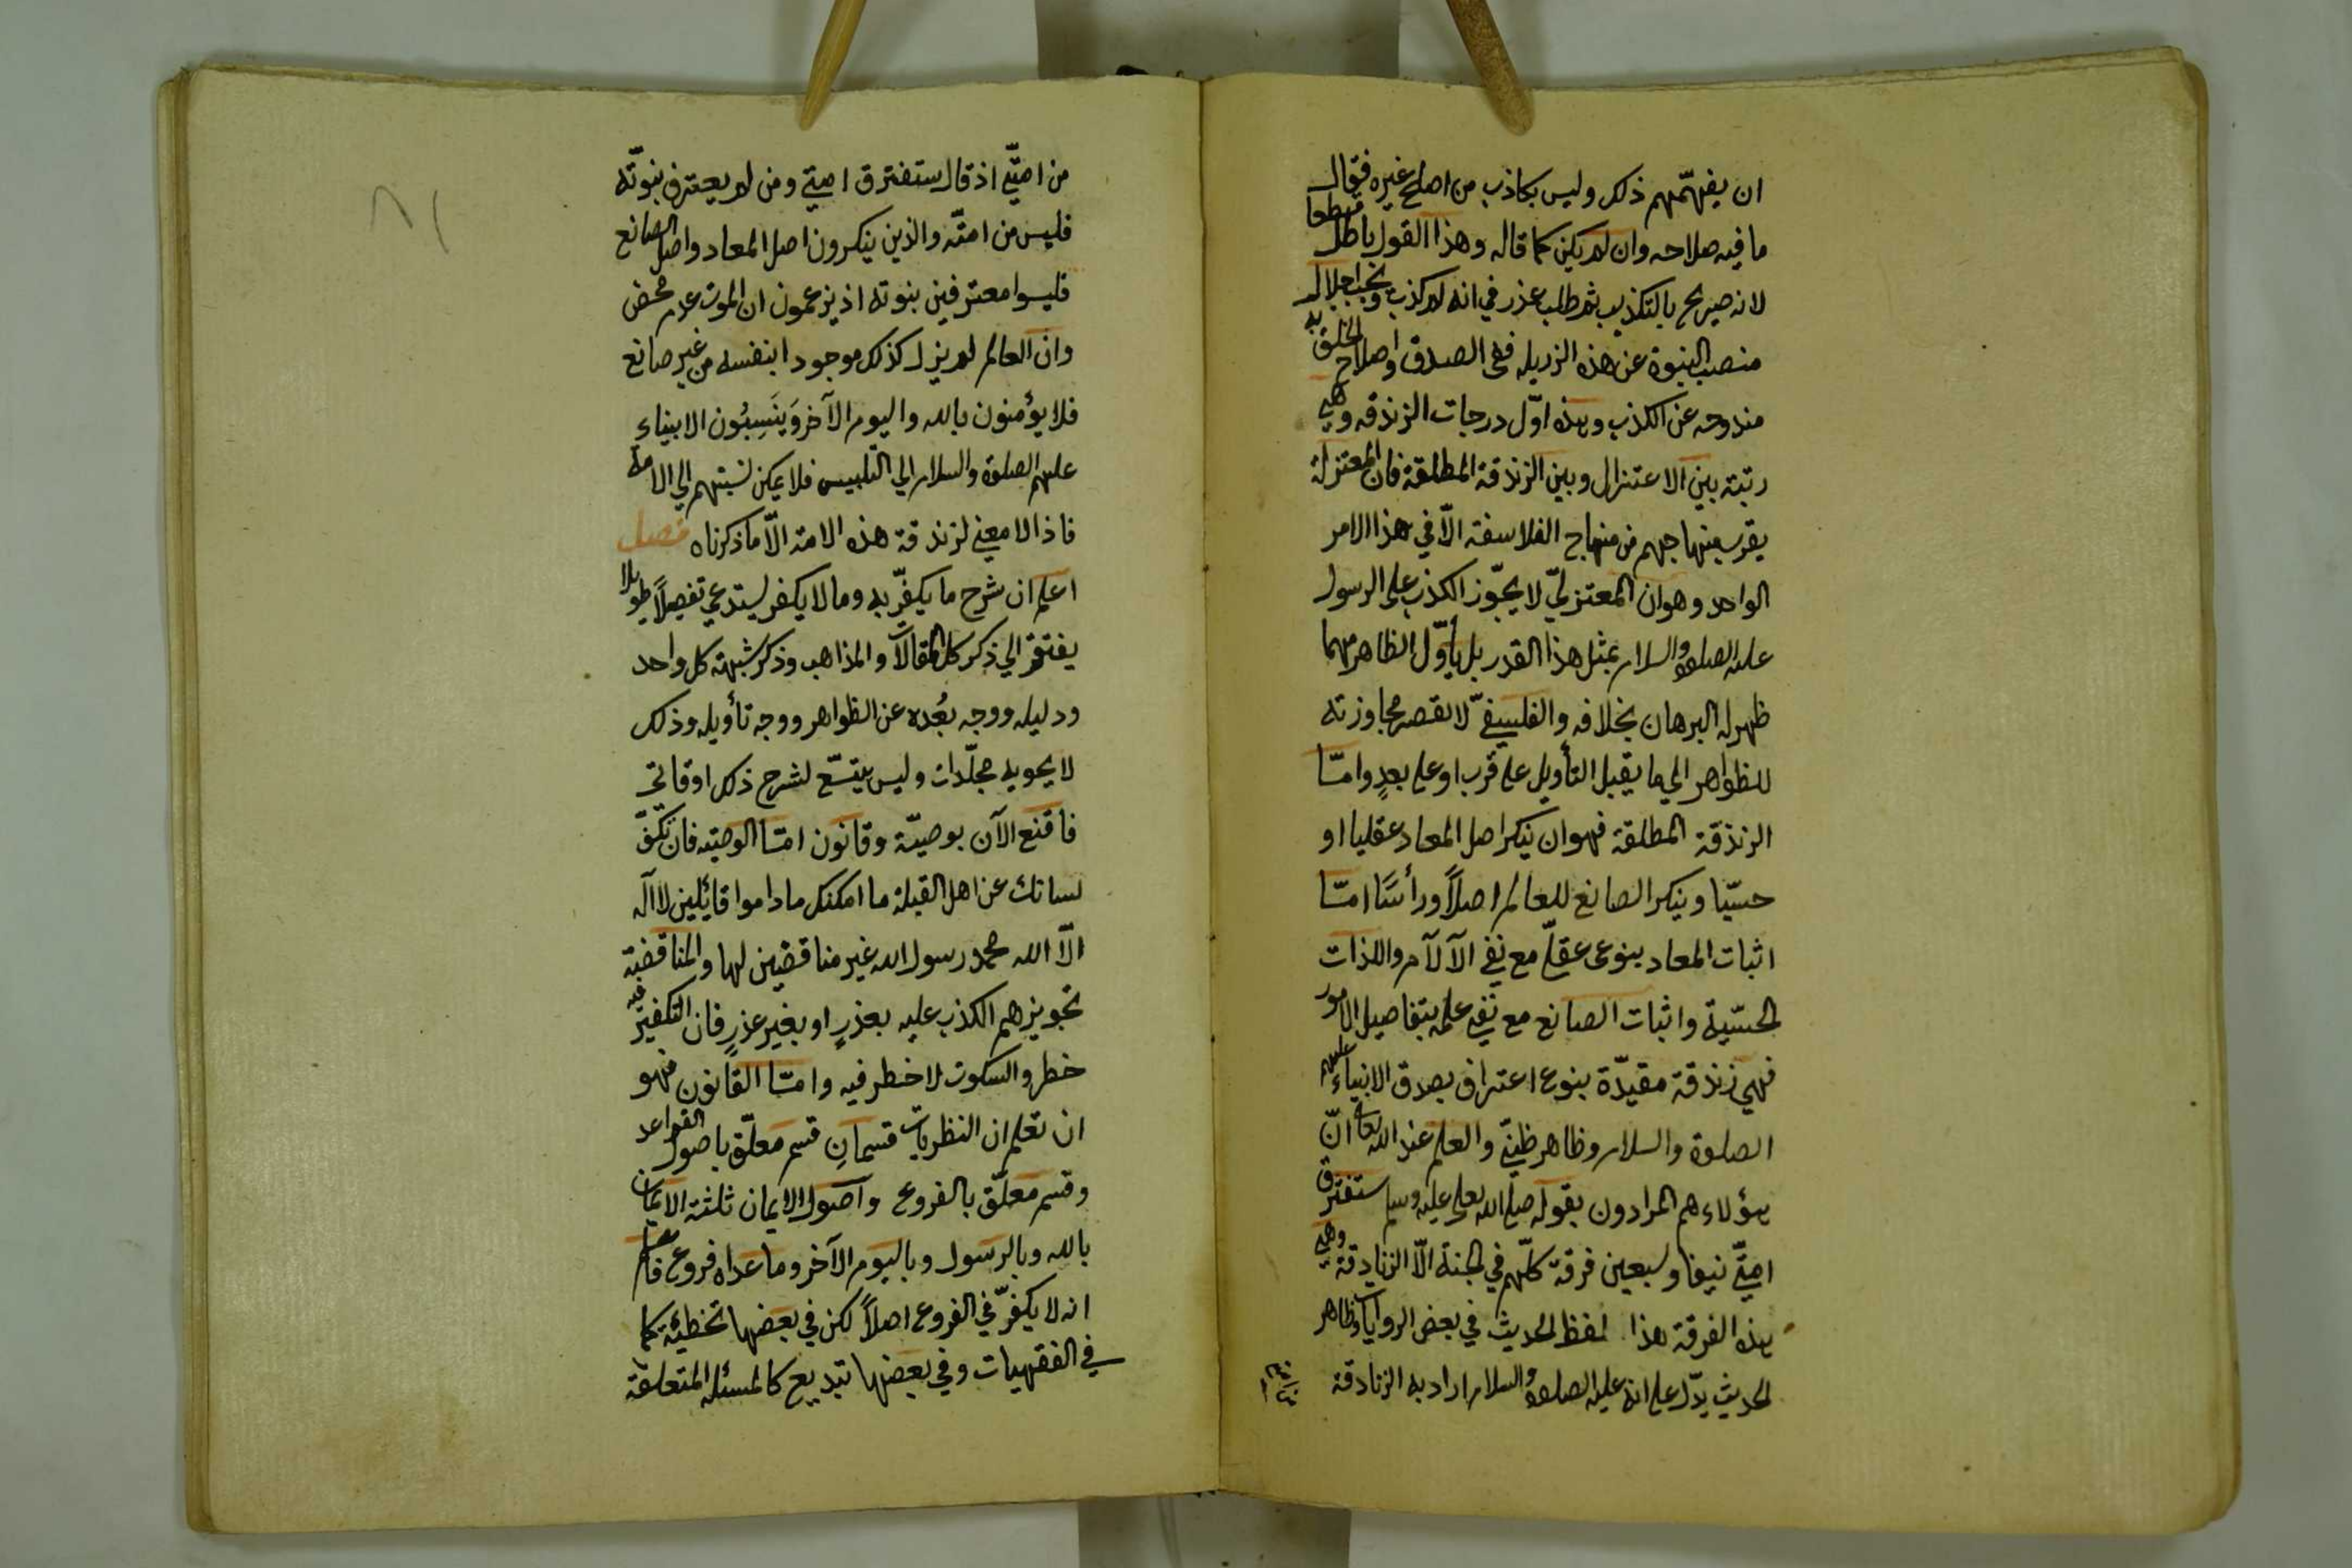 ان يفهمهم ذلك وليس بكاذب من اصلح غيره فقال
ما فيه صلاحه وان لم يكن كما قاله وهذا القول باطل قطعا
لانه صريح بالتكذيب ثم طلب عذر في انه لم يكذب ويجب اجلال
منصب النبوة عن هذه الرذيله ففي الصدق واصلاح الخلق به
مندوحه عن الكذب وهذه اوّل درجات الزندقه وهي
رتبته بين الاعتزال وبين الزندقة المطلقة فان المعتزلة
يقرب منهاجهم من منهاج الفلاسفة الّا في هذا الامر
الواحد وهو ان المعتزليّ لا يجوّز الكذب على الرسول
عليه الصلوة والسلام بمثل هذا القدر بل يأوّل الظاهر مهما
ظهر له البرهان بخلافه والفلسفيّ لا يقصر مجاوزته
للظواهر الي ما يقبل التأويل على قرب او على بعدٍ وامّا
الزندقة المطلقة فهو ان ينكر اصل المعاد عقليا او
حسّيا وينكر الصانع للعالم اصلاً ورأسًا امّا
اثبات المعاد بنوع عقلّي مع نفي الآلآم واللذات
الحسّية واثبات الصانع مع نفي علمه بتفاصيل الامور
فهي زندقة مقيدّة بنوع اعتراف بصدق الانبياء عليهم
الصلوة والسلام وظاهر ظنيّ والعلم عند الله تعالى انّ
هؤلاء هم المرادون بقوله صلى الله تعالى عليه وسلم ستفترق
امتيّ نيفا وسبعين فرقة كلّهم في الجنة الّا الزنادقة وهي
هذه الفرقة هذا لفظ الحديث في بعض الروايات وظاهر
الحديث يدّل على انه عليه الصلوة والسلام اراد به الزنادقة
من امتيّ اذ قال ستفترق امتي ومن لم يعترف بنبوّته
فليس من امتّه والذين ينكرون اصل المعاد واصل الصانع
فليسوا معترفين بنبوته اذ يزعمون ان الموت عدم محض
وان العالم لم يزل كذلك موجودا بنفسه من غير صانع
فلا يؤمنون بالله واليوم الآخر وَينَسِبُون الانبياء
عليهم الصلوة والسلام الي التلبيس فلا يمكن نسبتهم الي الامة
فاذا لا معني لزندقة هذه الامة الّا ما ذكرناه فصل
اعلم ان شرح ما يكفّر به وما لا يكفر يستدعي تفصيلاً طويلا
يفتقر الي ذكر كل المقالات والمذاهب وذكر شبهة كل واحد
ودليله ووجه بُعده عن الظواهر ووجه تأويله وذلك
لا يحويه مجلّدات وليس يتسّع لشرح ذلك اوقاتى
فاقنع الآن بوصيّة وقانون امّا الوصيّه فان تكفّ
لسانك عن اهل القبلة ما امكنك ما داموا قائلين لا اله
الّا الله محمد رسول الله غير مناقضين لها والمناقضة
تجويزهم الكذب عليه بعذرٍ او بغير عذرٍ فان التكفير فيه
خطر والسكوت لا خطر فيه وامّا القانون فهو
ان تعلم ان النظريات قسمانِ قسم معلّق باصول القواعد
وقسم معلّق بالفروع واصول الايمان ثلثة الايمان
بالله وبالرسول وباليوم الآخر وما عداه فروع فاعلم
انه لا يكفّر في الفروع اصلاً لكن في بعضها تخطئة كما
في الفقهيات وفي بعضها تبديع كالمسئله المتعلقة